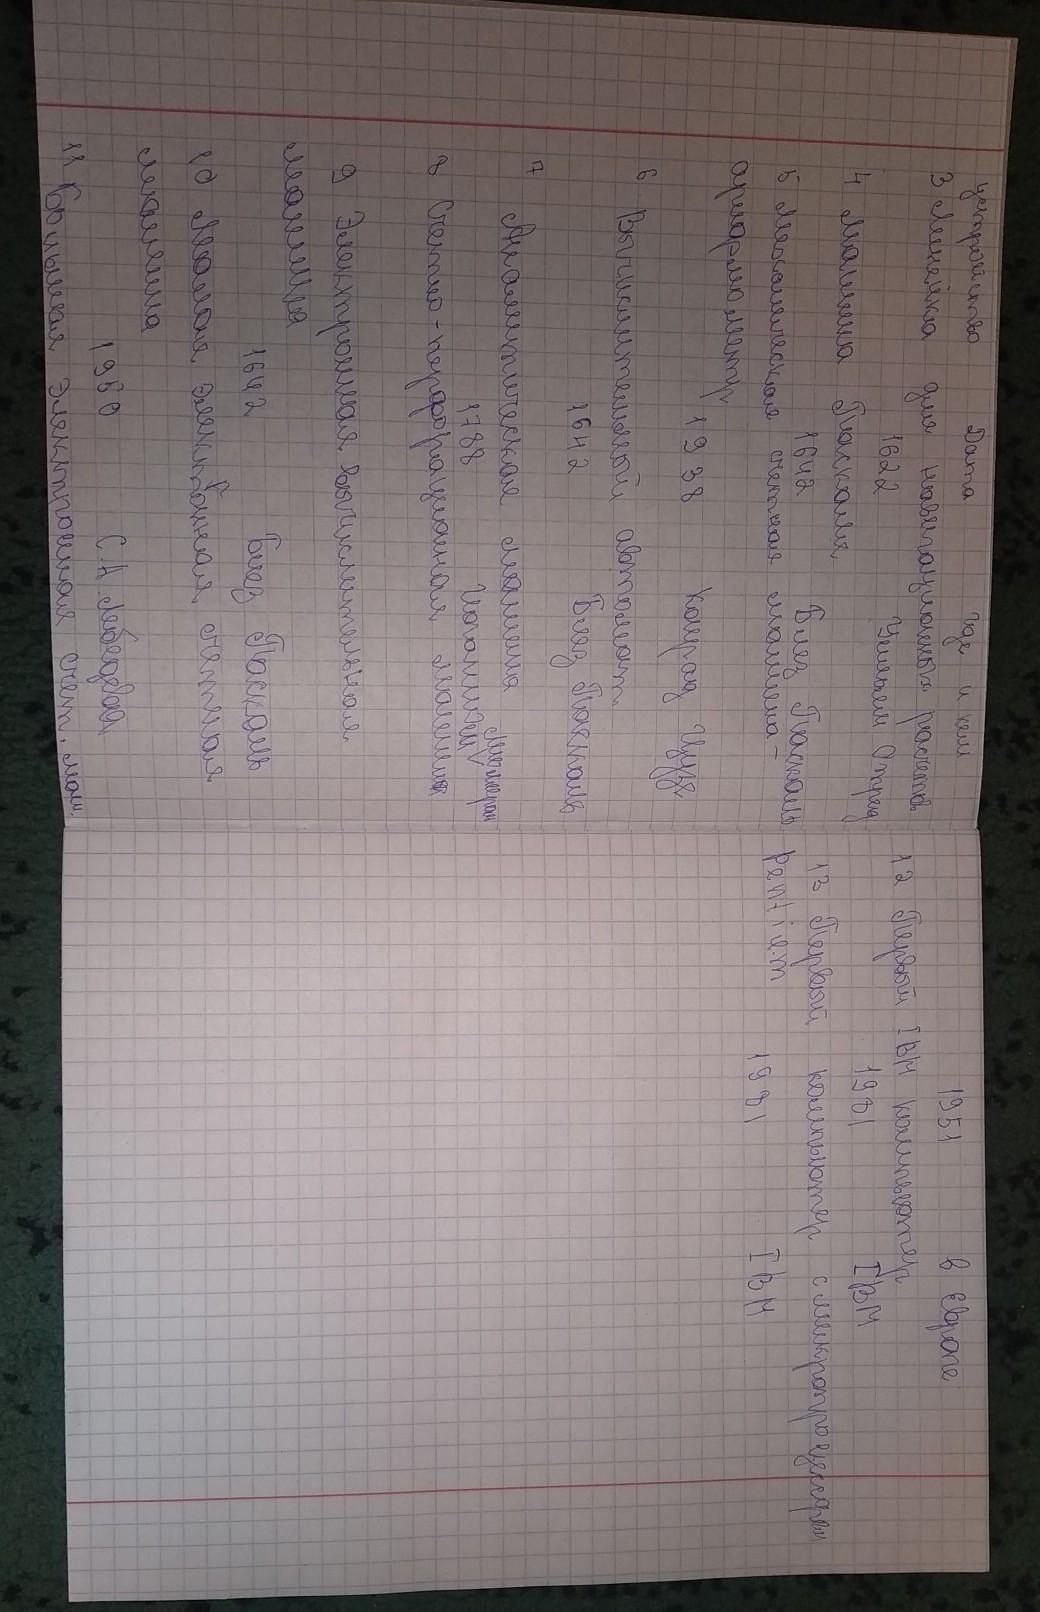 устройство Дата где и кем
3 Линейка для навигационых расчетов
1622 Уильям Отред
4 Машина Паскаля
1642 Блез Паскаль
5 Механическая счетная машина-
арифмометр
1938 Конрад Цузе
6 Вычислительный автомат
1642 Блез Паскаль
7 Аналитическая машина
1788 Иоганном Мюллером
8 Счетно-перфорационная машина
9 Электронная вычислительная
машина
1642 Блез Паскаль
10 Малая электронная счетная
машина
1950 С.А Лебедева
11 Большая электронная счет. маш.
1951 в Европе
12 Первый IBM компьютер
1981 IBM
13 Первый компьютер с микропроцессором
pentium
1981 IBM